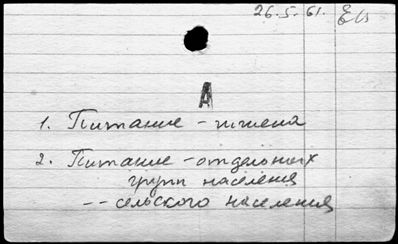 26.5.61.
A
1. Питание - гигиена
2. Питание - отдельных
групп населения
-- сельского населения